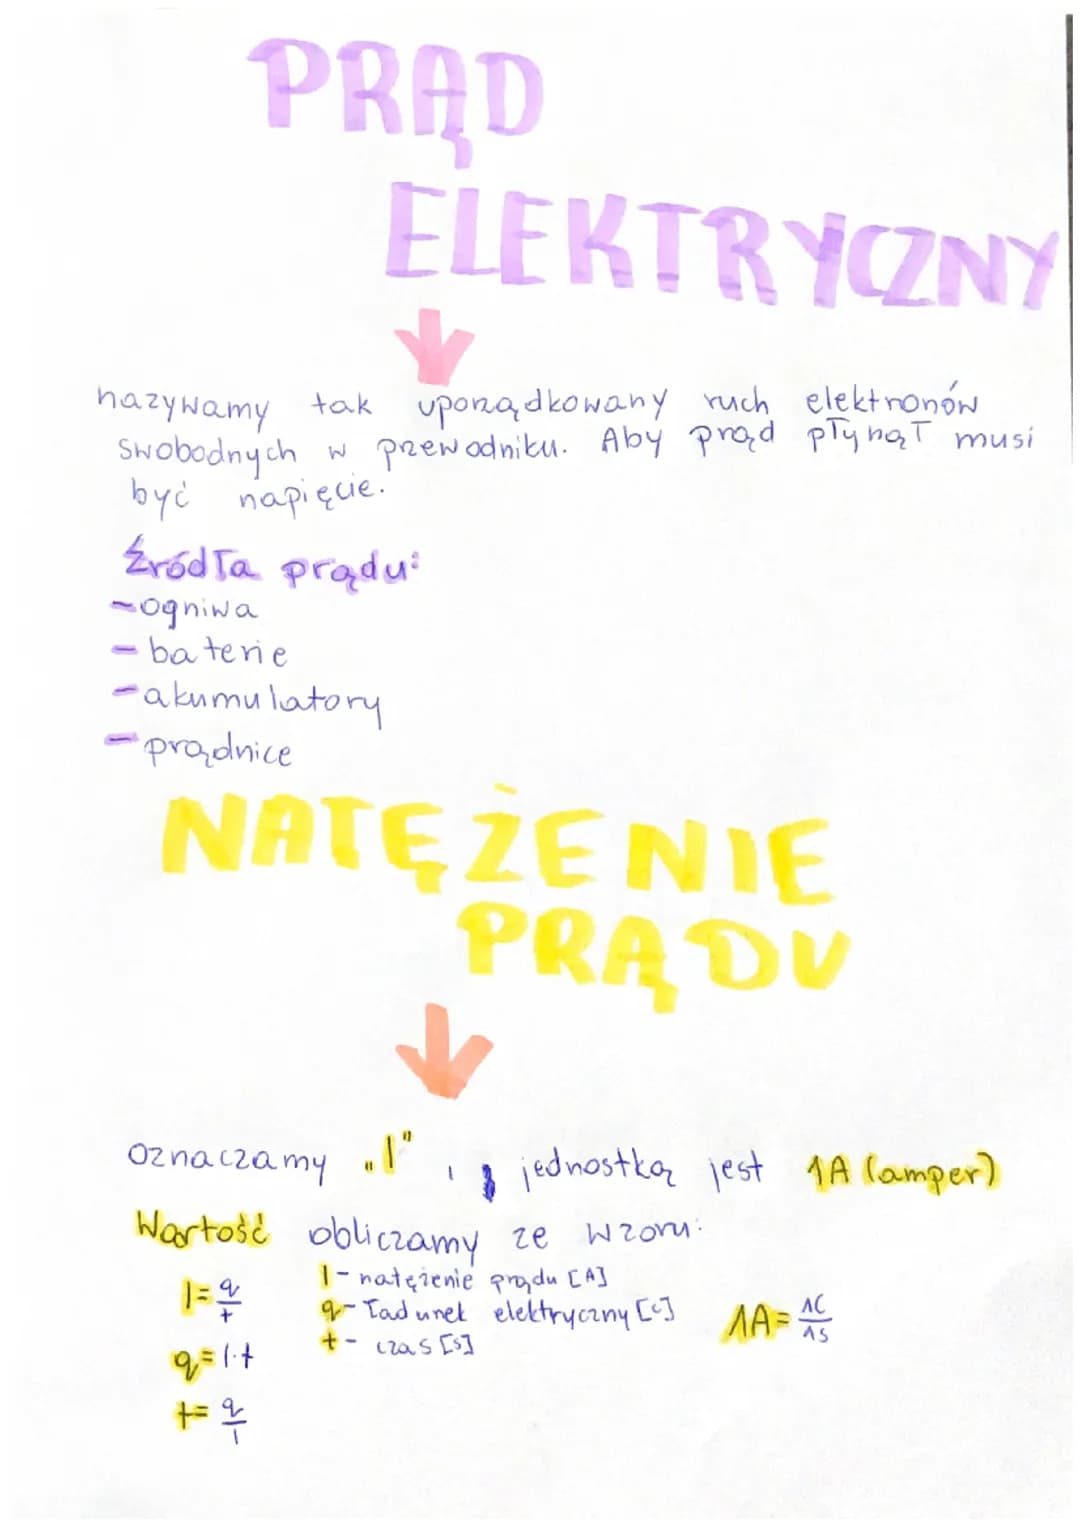 PRĄD
ELEKTRYCZNY
nazywamy tak uporządkowany ruch elektronów
swobodnych w przewodniku. Aby prąd płynął musi
być napięcie.
Źródła prądu:
- ogniwa
- baterie
- akumulatory
- prądnice
NATĘŻENIE
PRĄDU
oznaczamy „I", jednostką jest 1A (amper)
Wartość obliczamy ze wzoru:
I = q/t
I - natężenie prądu [A]
q - ładunek elektryczny [C]
t - czas [s]
1A = 1C/1s
q = I·t
t = q/I